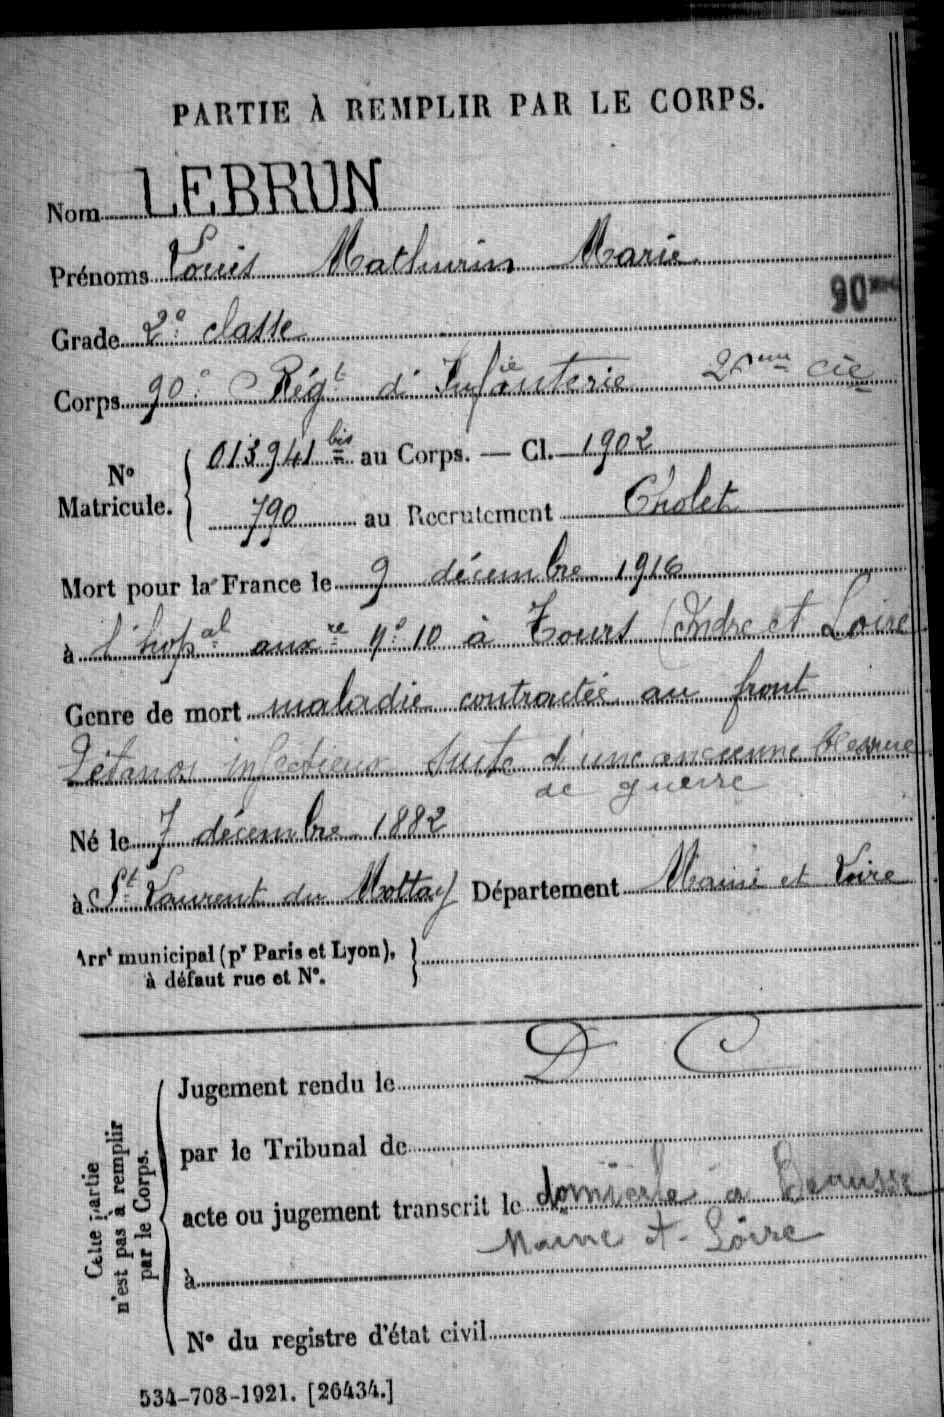 PARTIE À REMPLIR PAR LE CORPS.
Nom LEBRUN
Prénoms Louis Mathurin Marie
90
Grade 2e classe
Corps 90e Régt d'Infanterie cie
013941 bis au Corps. — Cl. 1902
No Matricule.
790 au Recrutement Cholet
Mort pour la France le 9 décembre 1916
à l'hopal auxre No 10 à Tours (Indre et Loire
Genre de mort maladie contractée au front
Tétanos infectieux suite d'une ancienne blessure
de guerre
Né le 7 décembre 1882
à St Laurent du Mottay Département Maine et Loire
Arrt municipal (pr Paris et Lyon),
à défaut rue et No.
D C
Jugement rendu le
par le Tribunal de
acte ou jugement transcrit le domicile à Beausse
Maine et Loire
à
No du registre d'état civil
Cette partie
n'est pas à remplir
par le Corps.
534-708-1921. [26434.]